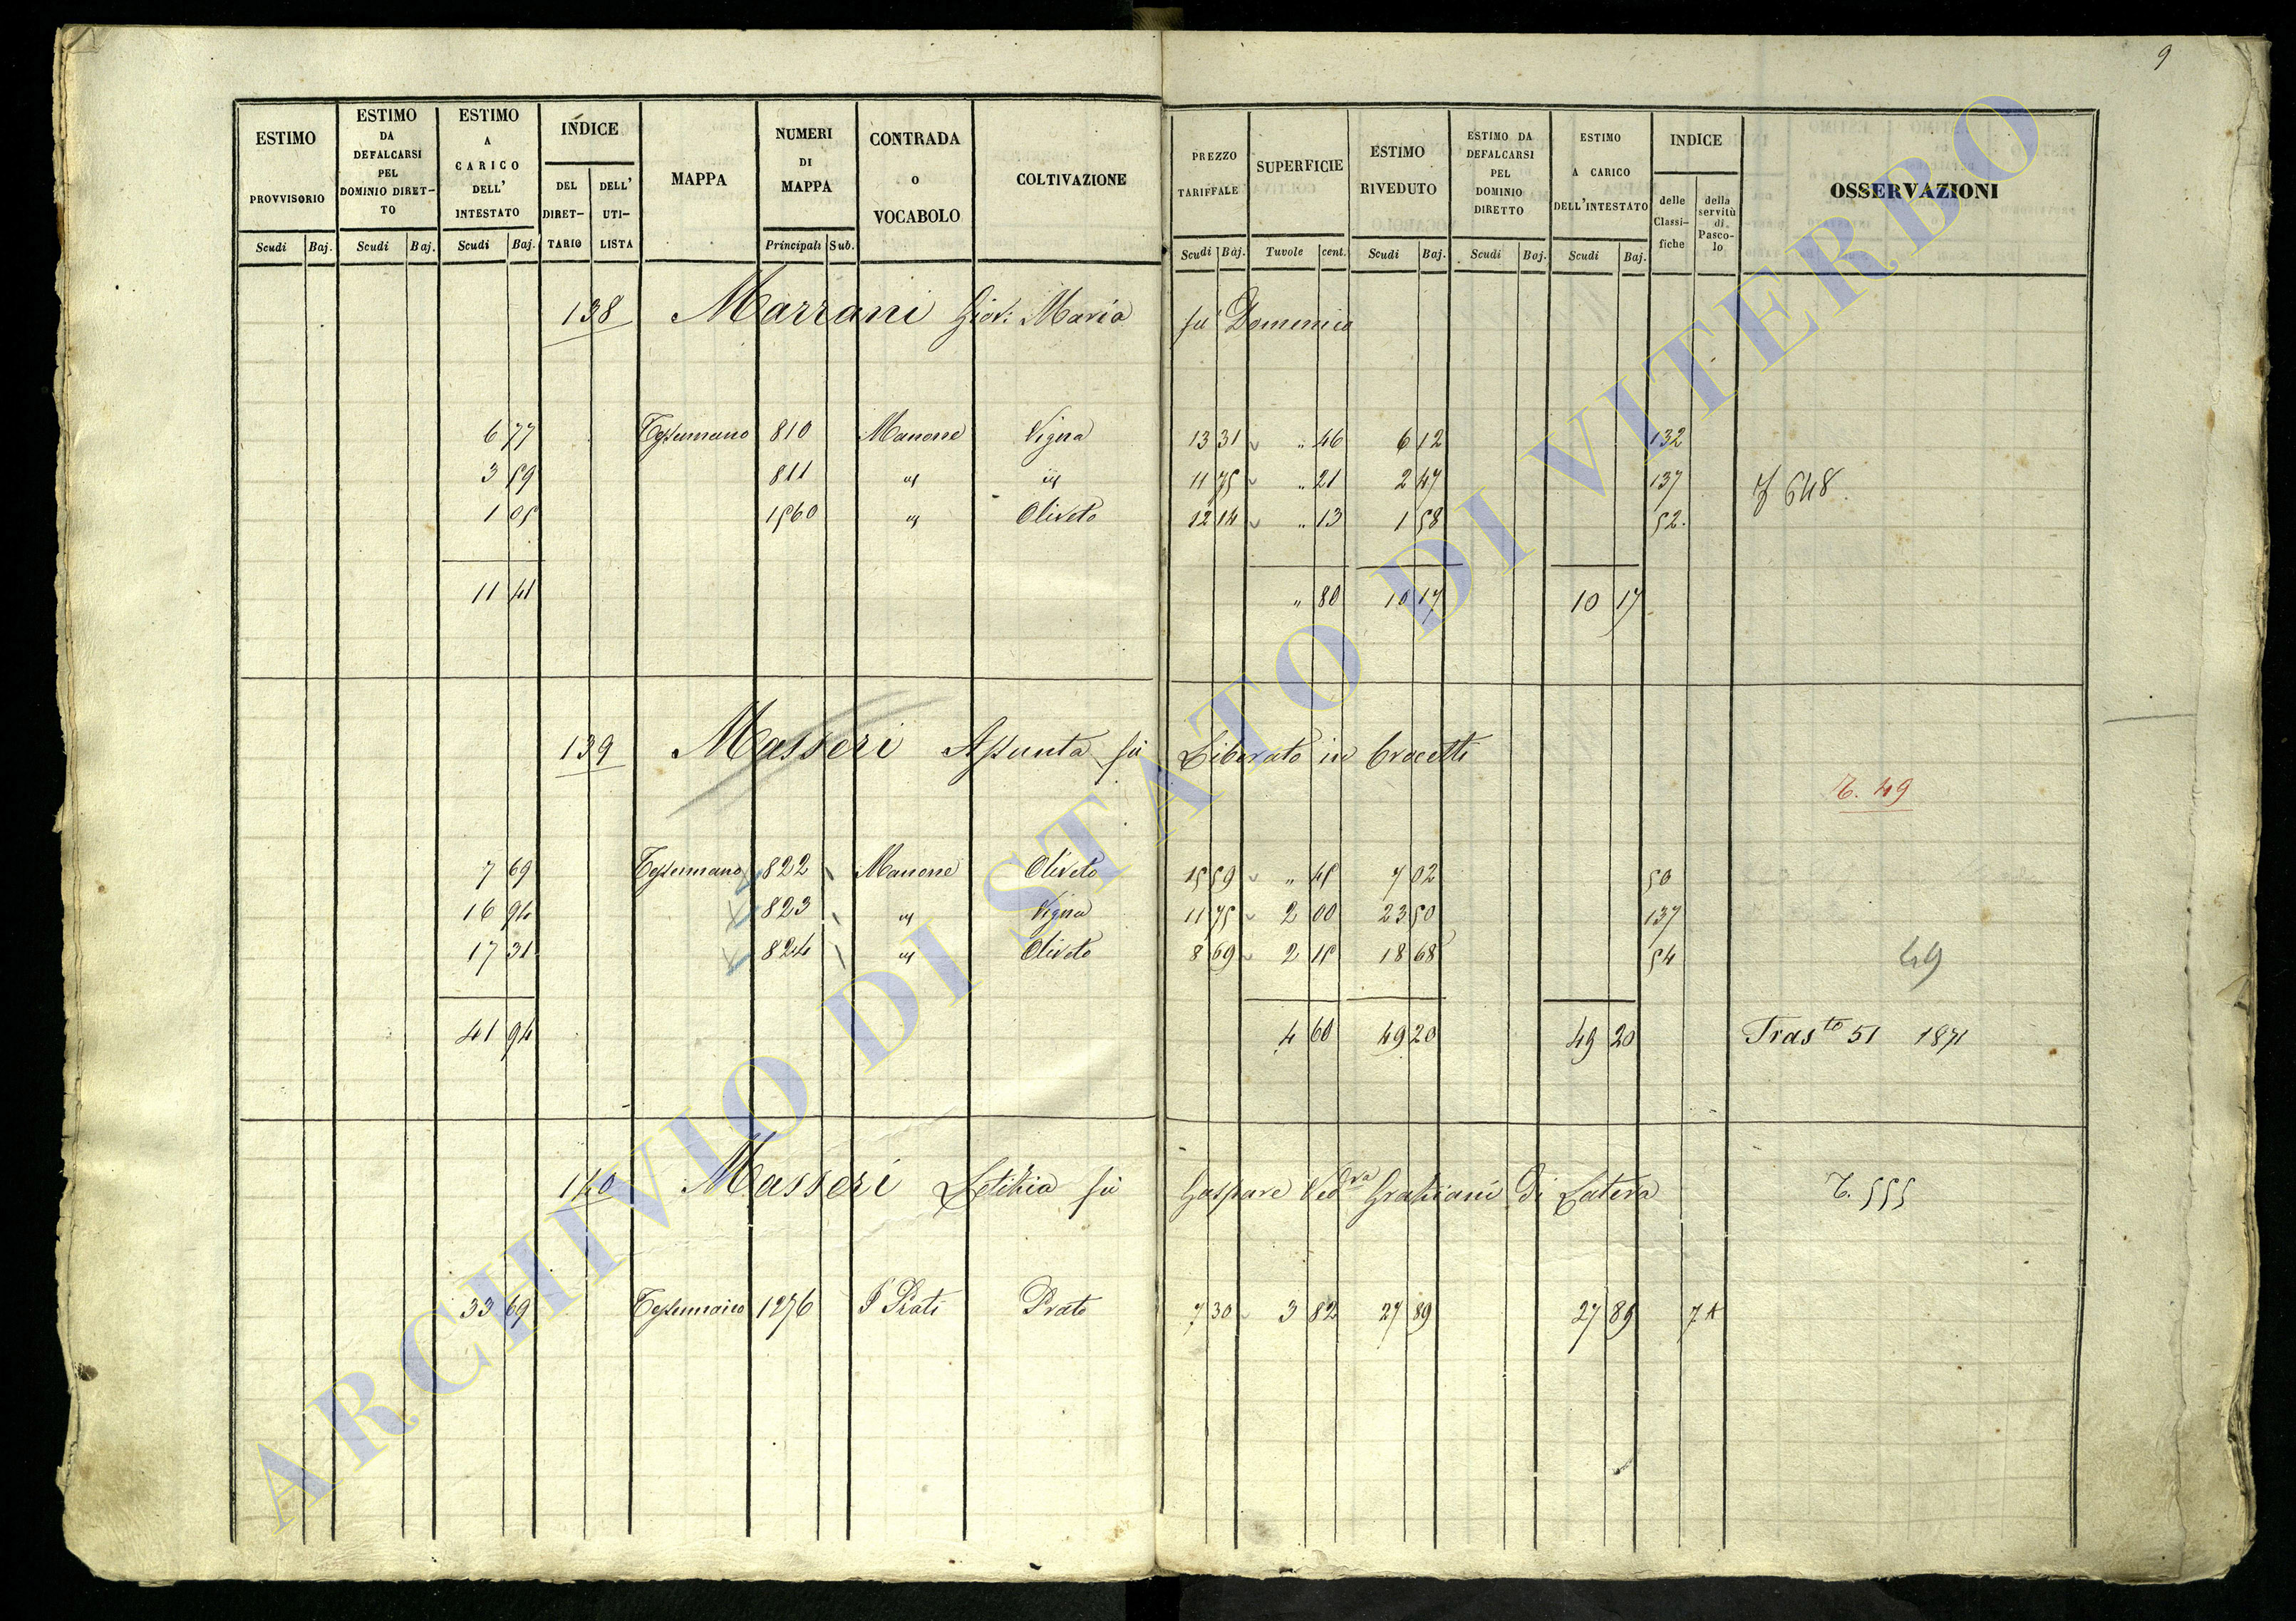 9
ESTIMO PROVVISORIO
ESTIMO DA DEFALCARSI PEL DOMINIO DIRET-TO
ESTIMO A CARICO DELL' INTESTATO
INDICE
DEL DIRET-TARIO
DELL' UTI-LISTA
MAPPA
NUMERI DI MAPPA
CONTRADA o VOCABOLO
COLTIVAZIONE
PREZZO TARIFFALE
SUPERFICIE
ESTIMO RIVEDUTO
ESTIMO DA DEFALCARSI PEL DOMINIO DIRETTO
ESTIMO A CARICO DELL'INTESTATO
INDICE
delle Classi-fiche
della servitù di Pasco-lo
OSSERVAZIONI
Scudi Baj. Scudi Baj. Scudi Baj. Principali Sub. Scudi Baj. Tavole cent. Scudi Baj. Scudi Baj. Scudi Baj.
138 Marrani Giov: Maria fù Domenico
6 77 810 Manone Vigna 13 31 " 46 6 12 132
3 59 811 " " 11 75 " 21 2 47 137
648
1 05 1560 " Oliveto 12 14 " 13 1 58 52
11 41 " 80 10 17 10 17
139 Masseri Assunta fù Liberato in Crocetti
T. 49
7 69 822 Manone Oliveto 15 59 " 45 7 02 50
16 94 823 " Vigna 11 75 2 00 23 50 137
17 31 824 " Oliveto 8 69 2 15 18 68 54
49
41 94 4 60 49 20 49 20 Tras.to 51 1871
140 Masseri Letizia fù Gaspare Ved.va Graziani di Latera T. 555
33 69 1276 I Prati Prato 7 30 3 82 27 89 27 89 7A
ARCHIVIO DI STATO DI VITERBO